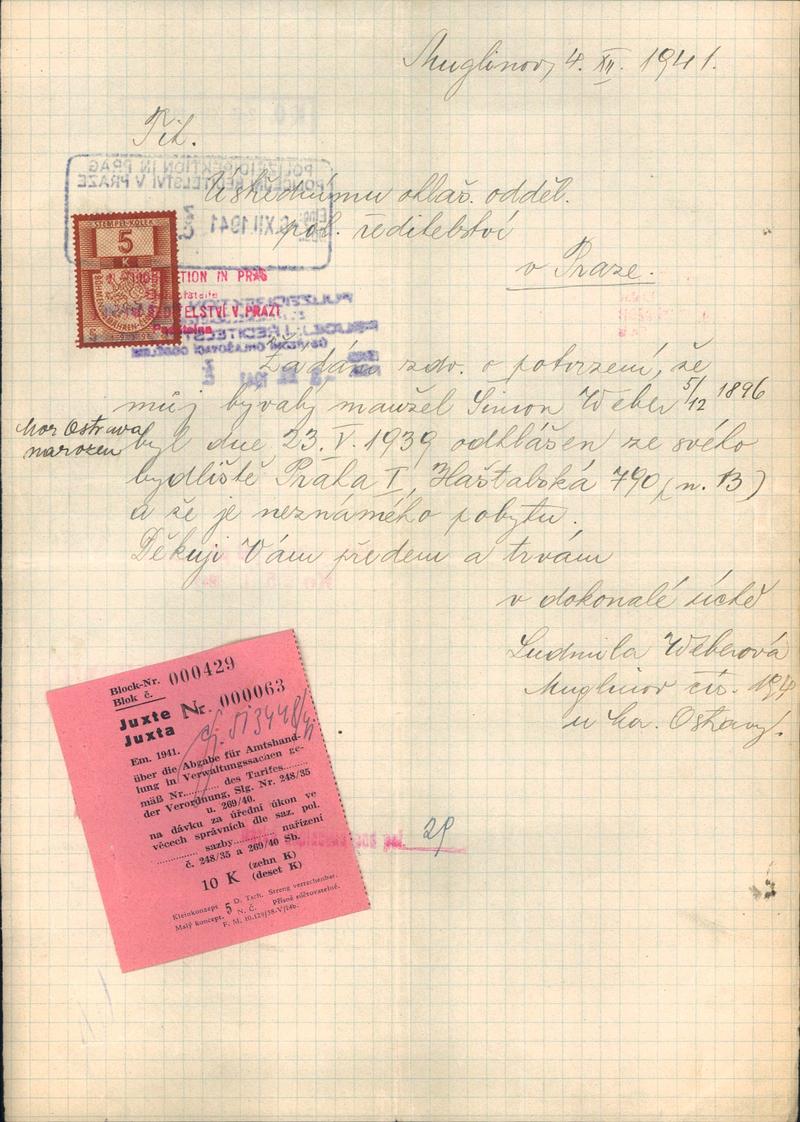 Muglinov, 4. XII. 1941.
Tit.
Ústřednímu ohlaš. odděl.
pol. ředitelství
v Praze.
STEMPEL KOLEK
5
K
POLIZEIDIREKTION IN PRAG
POLICEJNÍ ŘEDITELSTVÍ V PRAZE
XII 1941
TION IN PRAG
ELSTVÍ V PRAZE
Žádám zdv. o potvrzení, že
můj bývalý manžel Simon Weber 5/12 1896
Mor Ostrava
narozen
byl dne 23. V. 1939 odhlášen ze svého
bydliště Praha I, Haštalská 790 (n. 13)
a že je neznámého pobytu.
Děkuji Vám předem a trvám
v dokonalé úctě
Ludmila Weberová
Muglinov čís. 194
u Mor. Ostravy.
Block-Nr. 000429
Blok č.
Juxte Nr. 000063
Juxta
Em. 1941.
über die Abgabe für Amtshand-
lung in Verwaltungssachen ge-
mäß Nr. ........ des Tarifes ........
der Verordnung, Slg. Nr. 248/35
u. 269/40.
na dávku za úřední úkon ve
věcech správních dle saz. pol.
............ sazby ............ nařízení
č. 248/35 a 269/40 Sb.
10 K (zehn K)
(deset K)
Kleinkonzept 5 D. Tsch. Streng verrechenbar.
Malý koncept. N. Č. Přísně zúčtovatelné.
F. M. 10.129/38-V/14b.
29